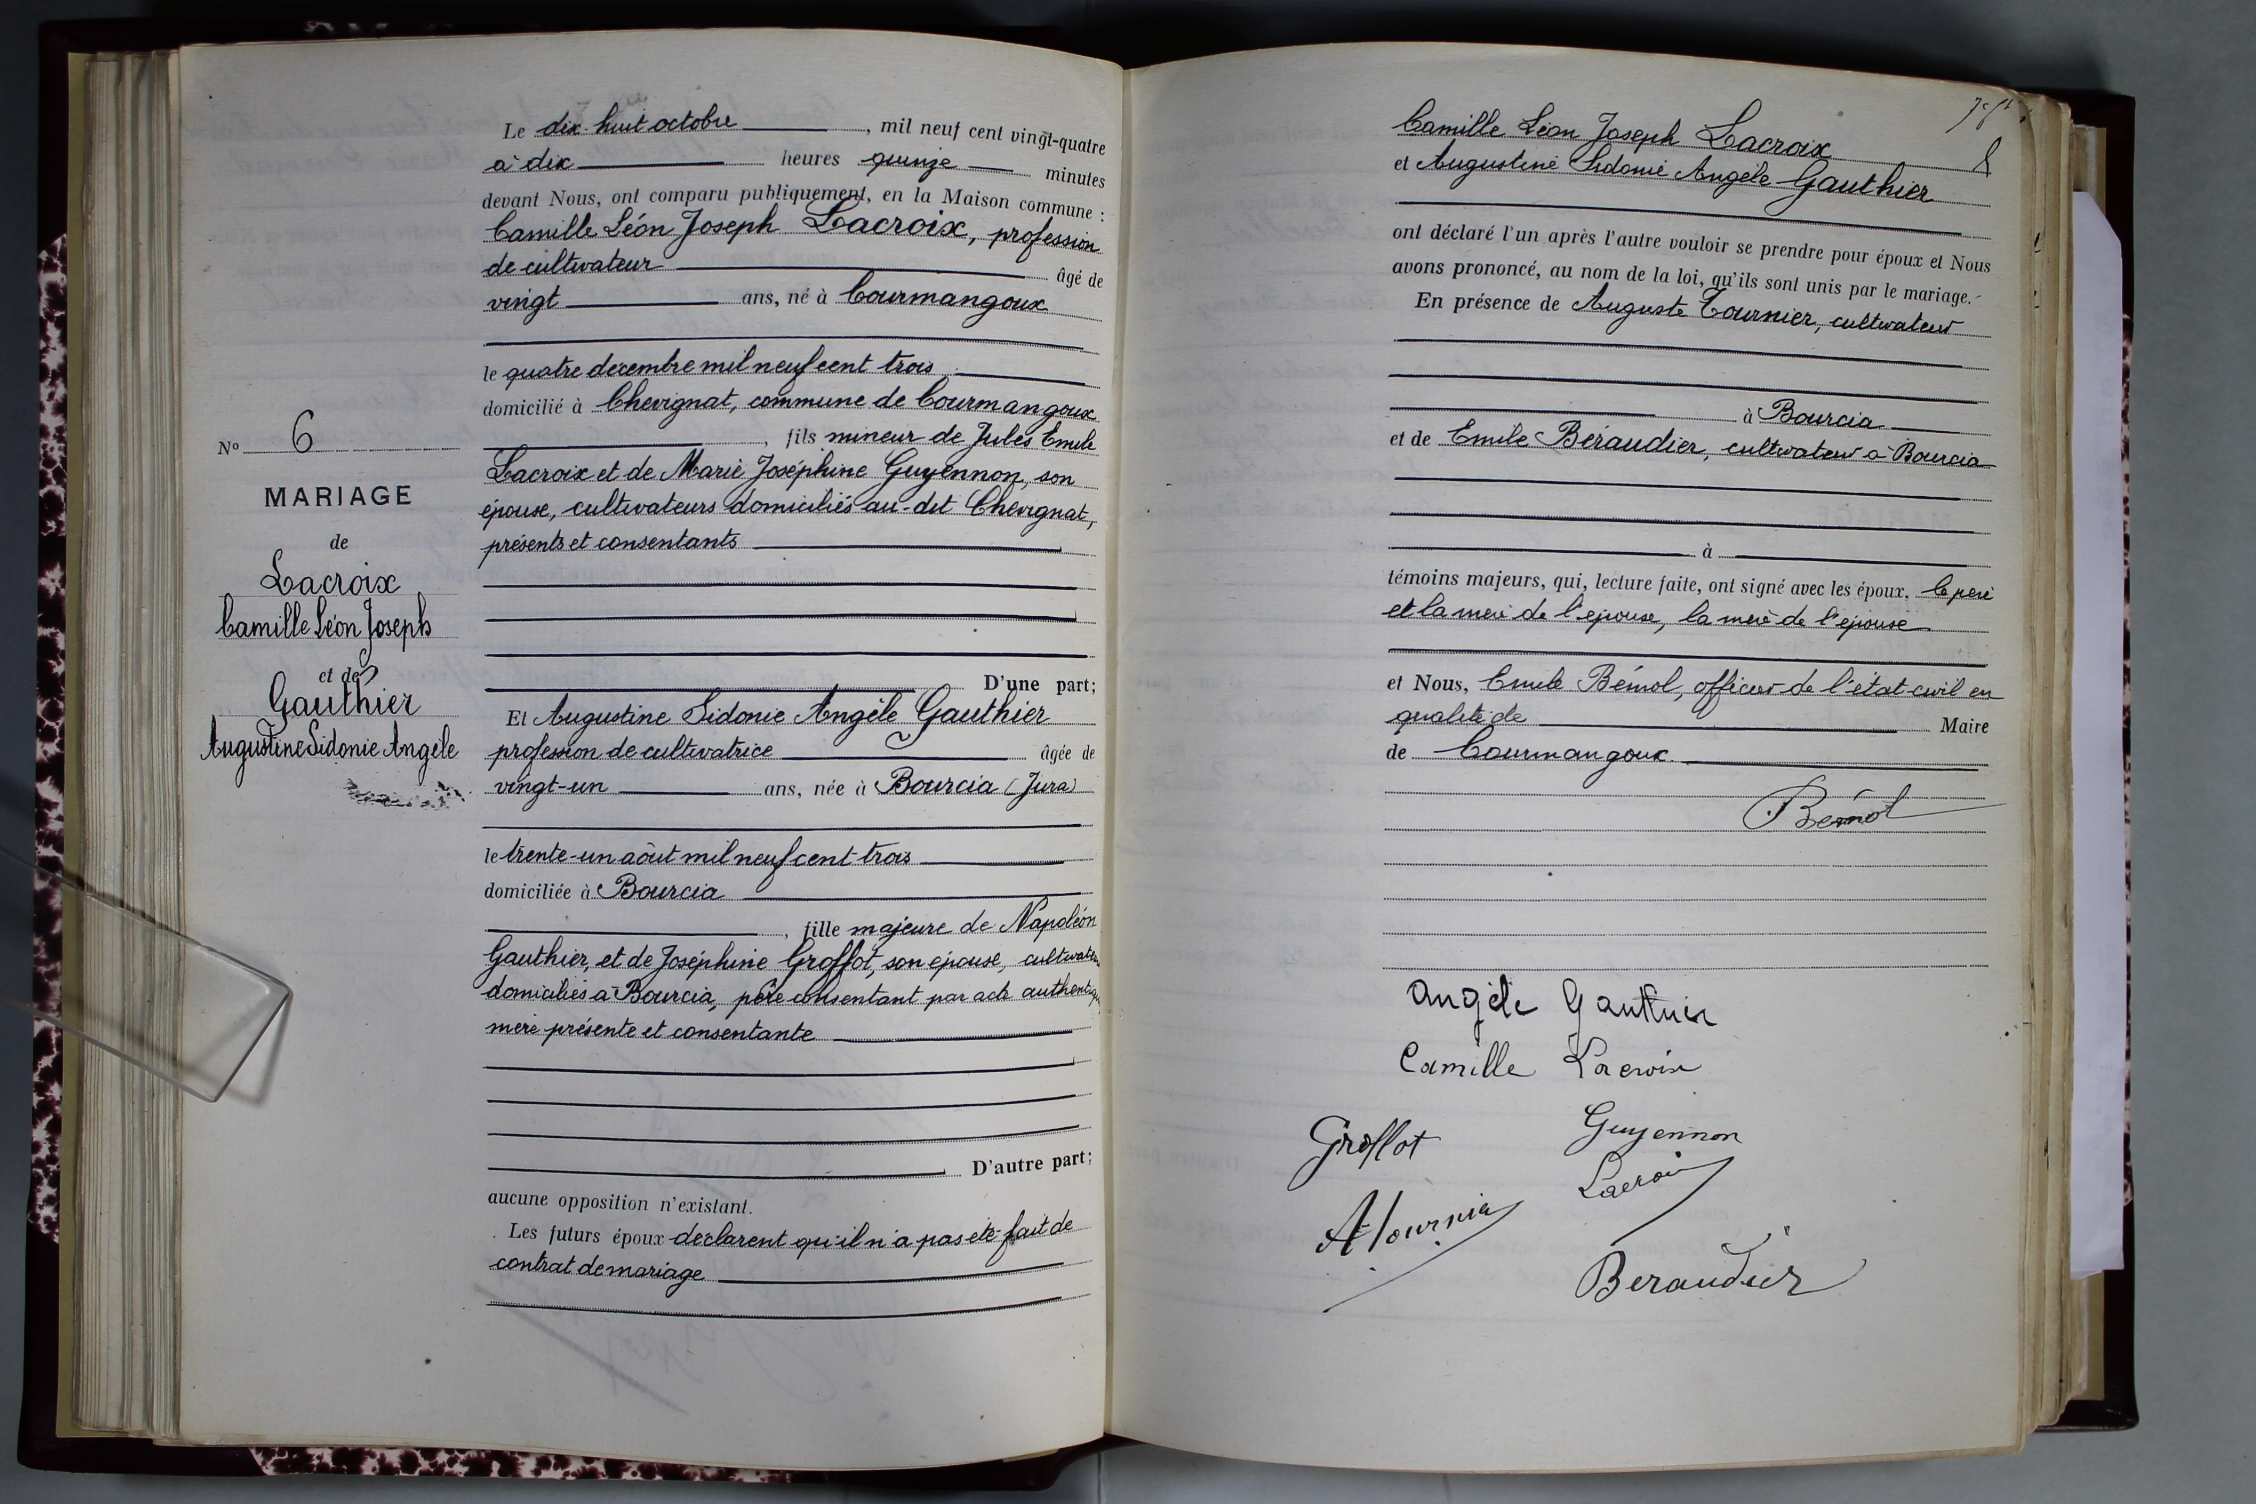 Le dix-huit octobre, mil neuf cent vingt-quatre
à dix heures quinze minutes
devant Nous, ont comparu publiquement, en la Maison commune :
Camille Léon Joseph Lacroix, profession
de cultivateur âgé de
vingt ans, né à Courmangoux
le quatre décembre mil neuf cent trois
domicilié à Chevignat, commune de Courmangoux
, fils mineur de Jules Emile
Lacroix et de Marie Joséphine Guyennon, son
épouse, cultivateurs domiciliés au-dit Chevignat,
présents et consentants
D'une part;
Et Augustine Sidonie Angèle Gauthier
profession de cultivatrice âgée de
vingt-un ans, née à Bourcia (Jura)
le trente-un août mil neuf cent trois
domiciliée à Bourcia
, fille majeure de Napoléon
Gauthier, et de Joséphine Groffot, son épouse,
domiciliés à Bourcia, père consentant par acte
mère présente et consentante
D'autre part;
aucune opposition n'existant.
Les futurs époux déclarent qu'il n'a pas été fait de
contrat de mariage
No 6
MARIAGE
de
Lacroix
Camille Léon Joseph
et de
Gauthier
Augustine Sidonie Angèle
Camille Léon Joseph Lacroix
et Augustine Sidonie Angèle Gauthier
ont déclaré l'un après l'autre vouloir se prendre pour époux et Nous
avons prononcé, au nom de la loi, qu'ils sont unis par le mariage.
En présence de Auguste Tournier, cultivateur
à Bourcia
et de Emile Béraudier, cultivateur à Bourcia
à
témoins majeurs, qui, lecture faite, ont signé avec les époux, le père
et la mère de l'époux, la mère de l'épouse
et Nous, Emile Bémol, officier de l'état-civil en
qualité de Maire
de Courmangoux.
Bémol
Angèle Gauthier
Camille Lacroix
Groffot
Guyennon
Lacroix
A Tournier
Beraudier